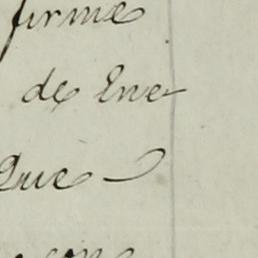 firme
de Ene-
Que